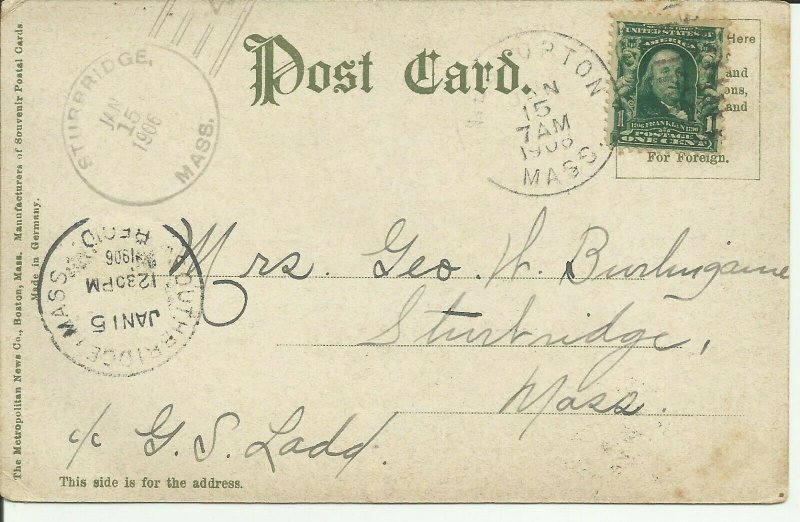 Post Card.
STURBRIDGE,
JAN
15
1906
MASS.
UPTON
JAN
15
7AM
1906
MASS.
UNITED STATES OF
AMERICA
1 FRANKLIN 1
POSTAGE
ONE CENT
Here
and
and
For Foreign.
SOUTHBRIDGE, MASS.
JAN 15
12 30 PM
1906
REC'D
Mrs. Geo. W. Burlingame
Sturbridge,
Mass.
c/c G. S. Ladd.
This side is for the address.
The Metropolitan News Co., Boston, Mass. Manufacturers of Souvenir Postal Cards.
Made in Germany.